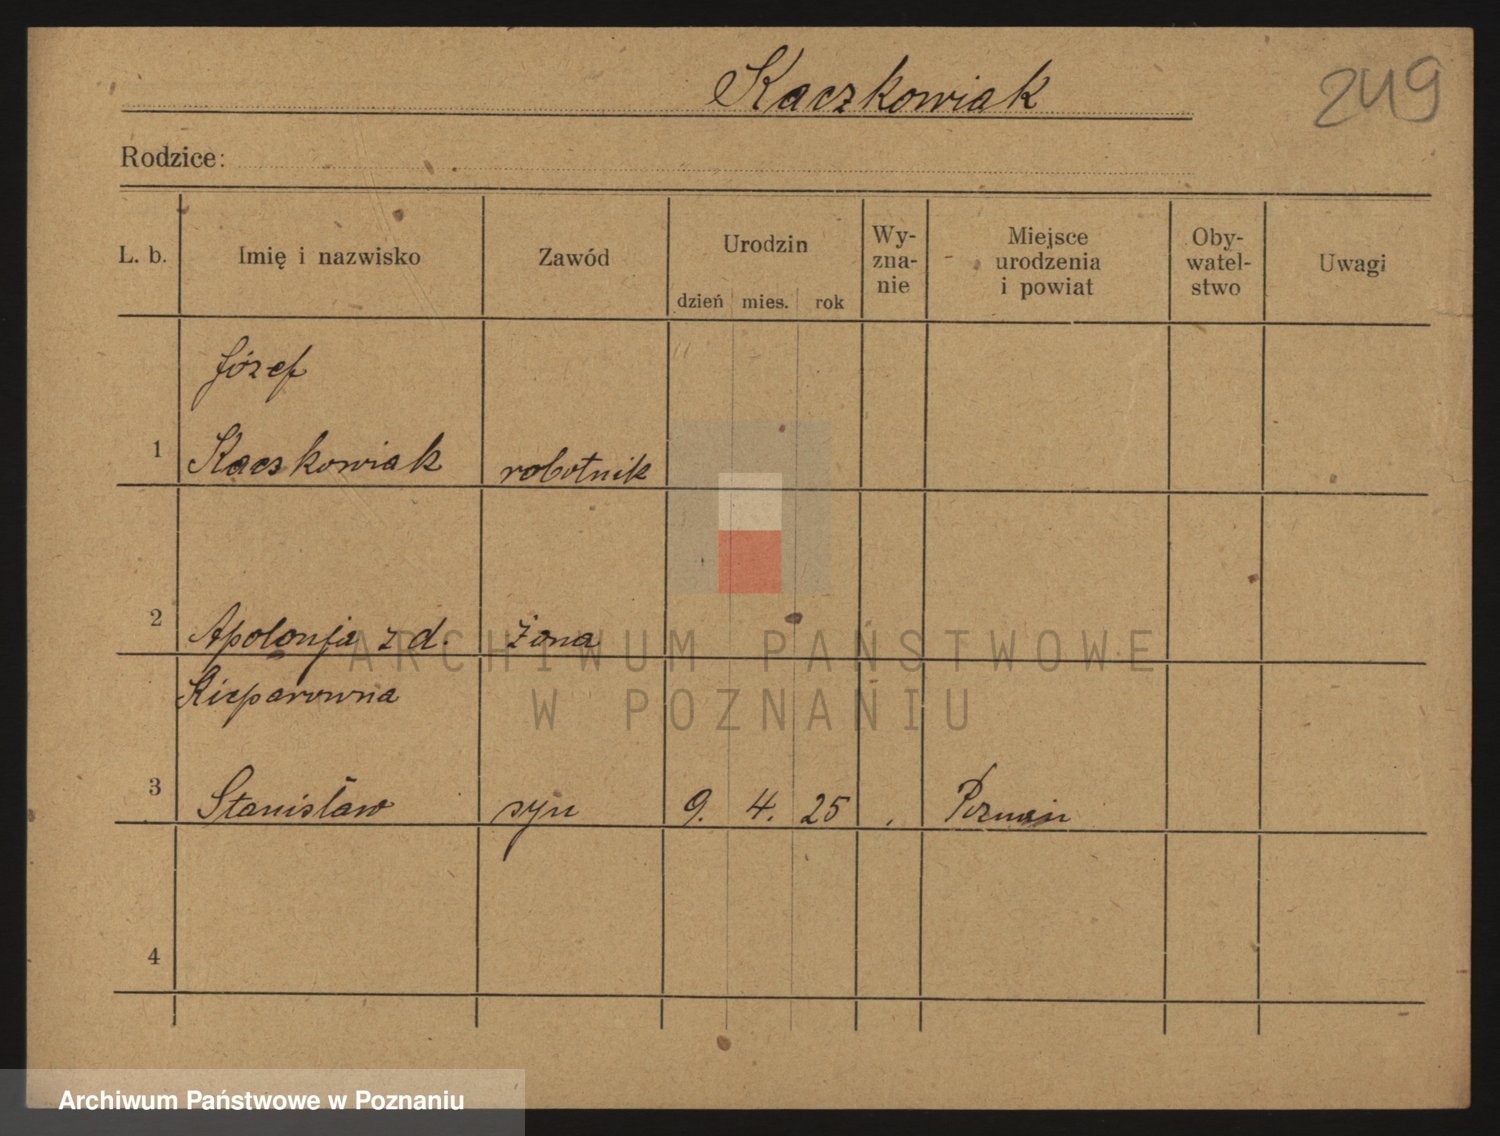 Kaczkowiak
249
Rodzice:
L. b.
Imię i nazwisko
Zawód
Urodzin
dzień mies. rok
Wy-
zna-
nie
Miejsce
urodzenia
i powiat
Oby-
watel-
stwo
Uwagi
Józef
1 Kaczkowiak robotnik
2 Apolonja z d. żona
Kieparowna
3 Stanisław syn 9. 4. 25 Poznań
4
ARCHIWUM PAŃSTWOWE
W POZNANIU
Archiwum Państwowe w Poznaniu